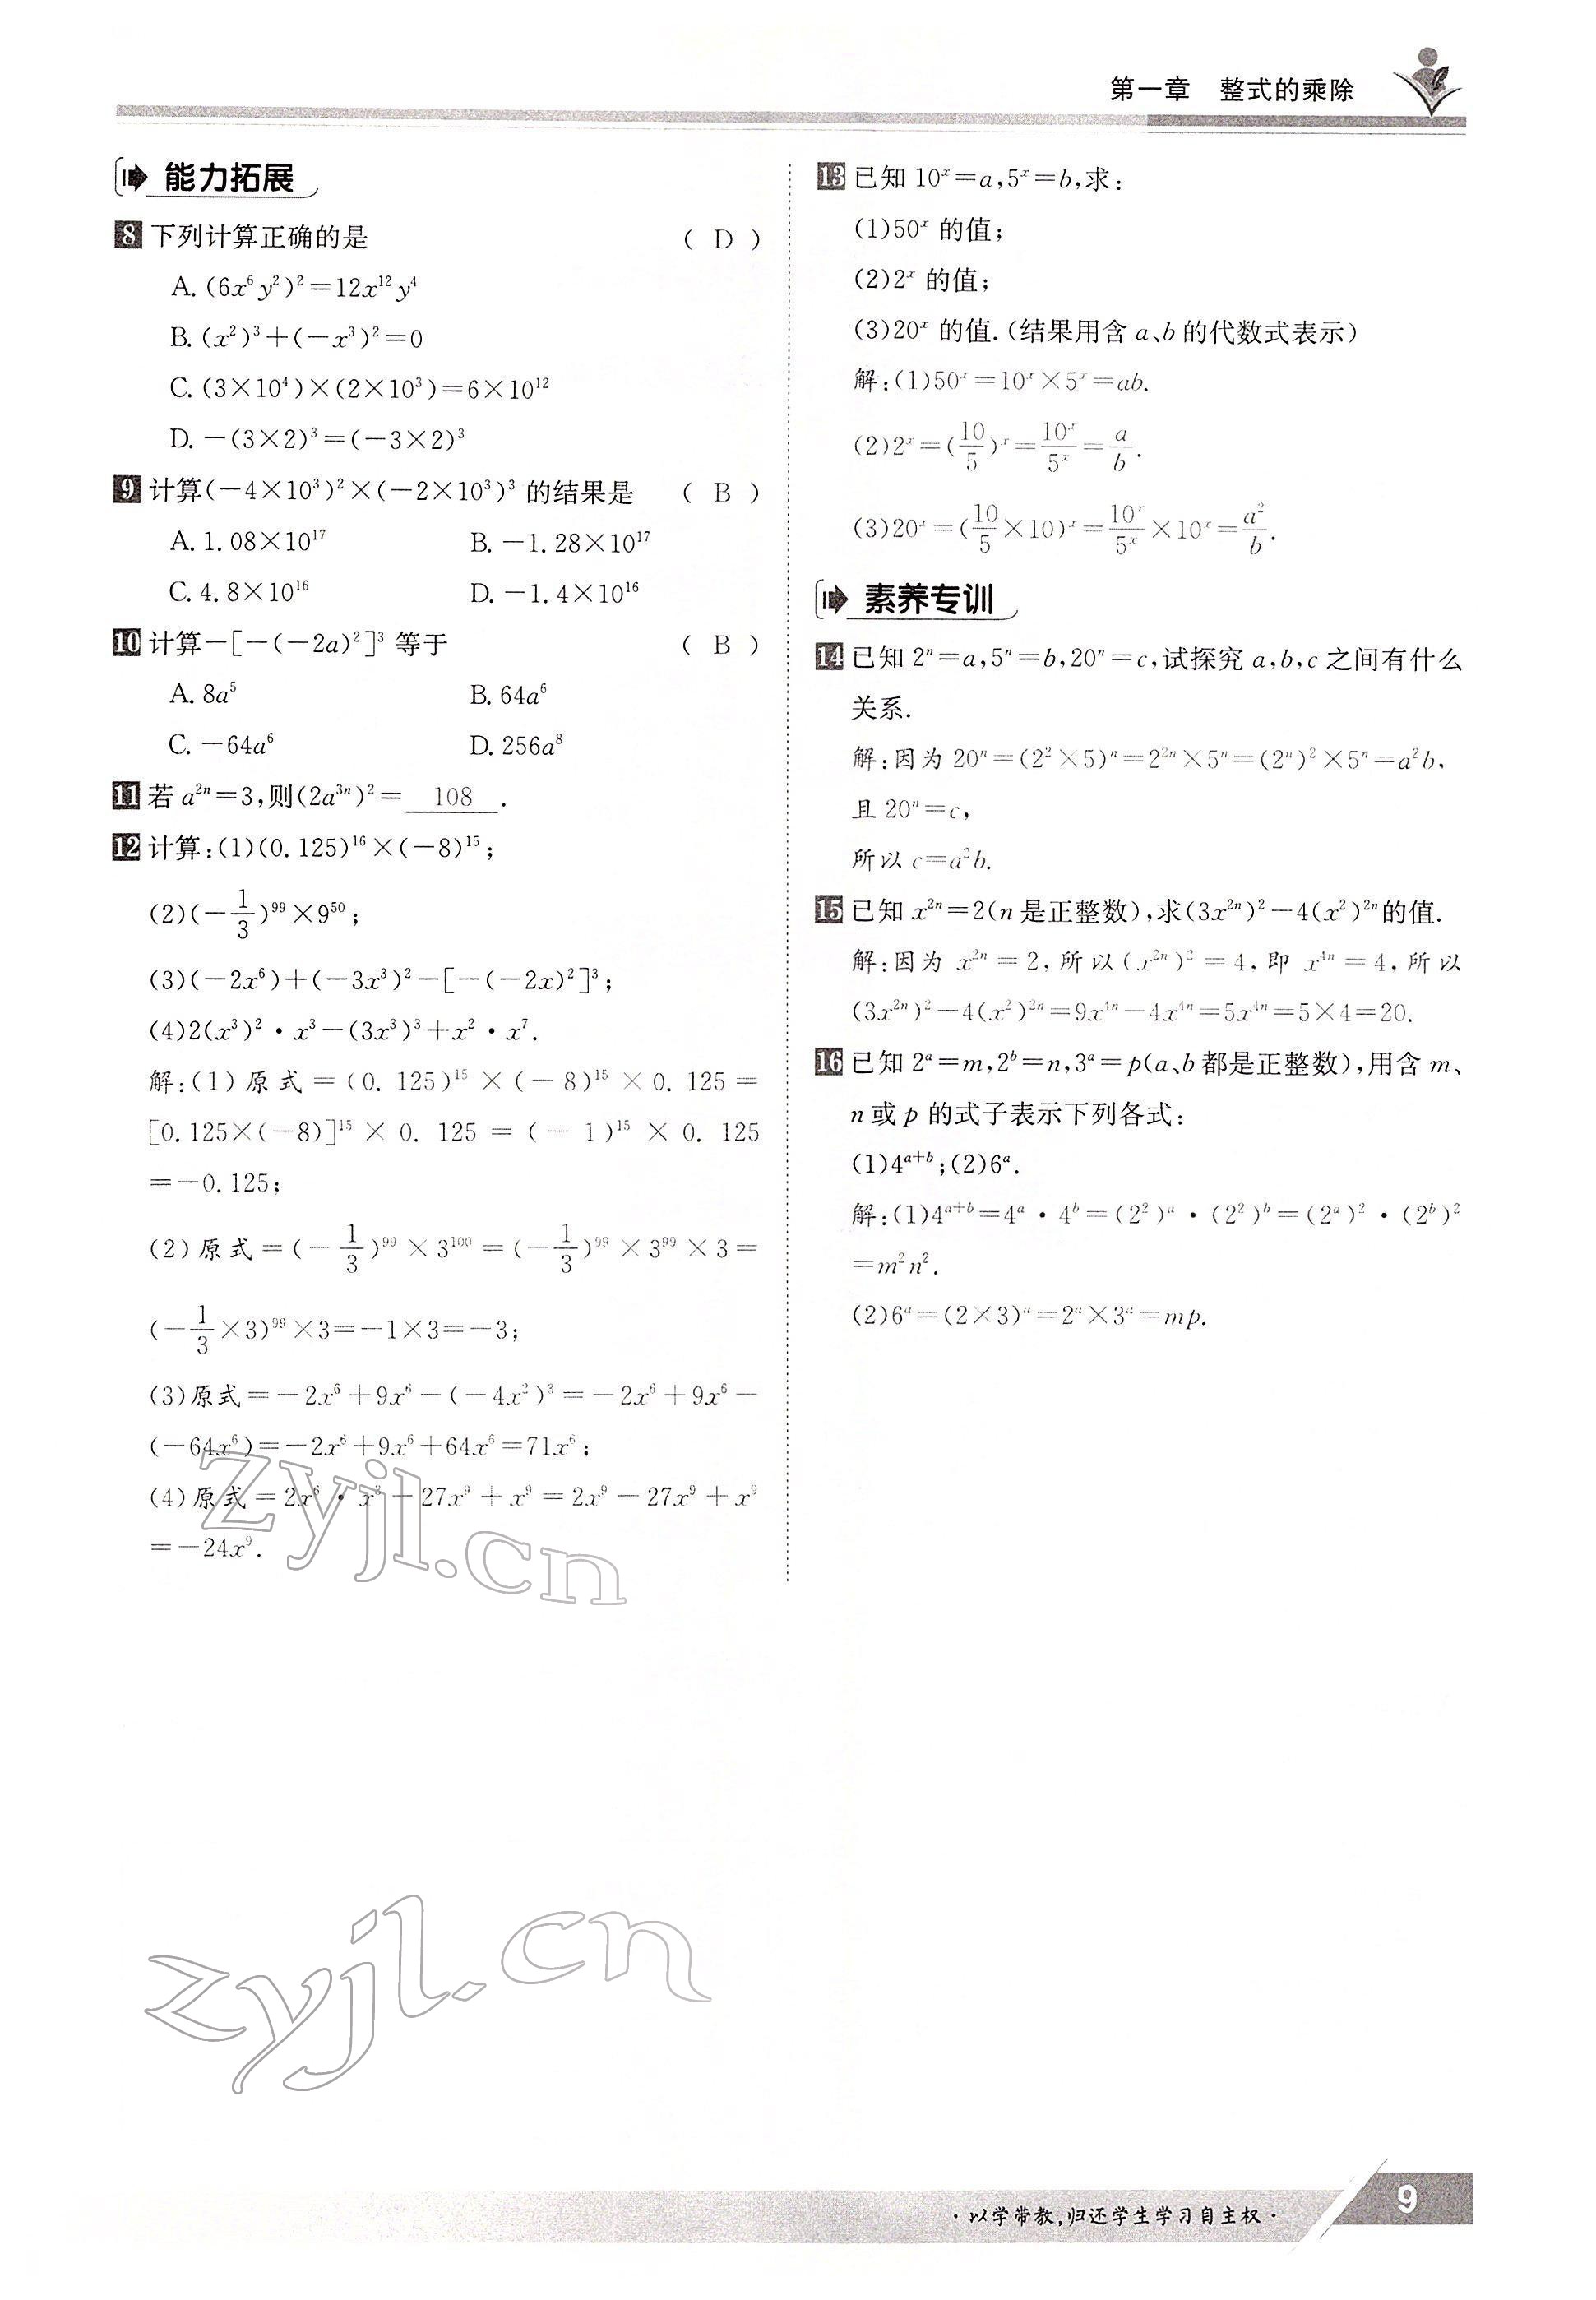 第一章 整式的乘除
能力拓展
8 下列计算正确的是 ( D )
A. (6x⁶y²)²=12x¹²y⁴
B. (x²)³+(-x³)²=0
C. (3×10⁴)×(2×10³)=6×10¹²
D. -(3×2)³=(-3×2)³
9 计算(-4×10³)²×(-2×10³)³ 的结果是 ( B )
A. 1.08×10¹⁷ B. -1.28×10¹⁷
C. 4.8×10¹⁶ D. -1.4×10¹⁶
10 计算-[-(-2a)²]³ 等于 ( B )
A. 8a⁵ B. 64a⁶
C. -64a⁶ D. 256a⁸
11 若 a²ⁿ=3,则(2a³ⁿ)²= 108 .
12 计算:(1)(0.125)¹⁶×(-8)¹⁵;
(2)(-1/3)⁹⁹×9⁵⁰;
(3)(-2x⁶)+(-3x³)²-[-(-2x)²]³;
(4)2(x³)²·x³-(3x³)³+x²·x⁷.
解:(1)原式=(0.125)¹⁵×(-8)¹⁵×0.125=
[0.125×(-8)]¹⁵×0.125=(-1)¹⁵×0.125
=-0.125;
(2)原式=(-1/3)⁹⁹×3¹⁰⁰=(-1/3)⁹⁹×3⁹⁹×3=
(-1/3×3)⁹⁹×3=-1×3=-3;
(3)原式=-2x⁶+9x⁶-(-4x²)³=-2x⁶+9x⁶-
(-64x⁶)=-2x⁶+9x⁶+64x⁶=71x⁶;
(4)原式=2x⁶·x³-27x⁹+x⁹=2x⁹-27x⁹+x⁹
=-24x⁹.
13 已知 10ˣ=a,5ˣ=b,求:
(1)50ˣ 的值;
(2)2ˣ 的值;
(3)20ˣ 的值.(结果用含 a、b 的代数式表示)
解:(1)50ˣ=10ˣ×5ˣ=ab.
(2)2ˣ=(10/5)ˣ=10ˣ/5ˣ=a/b.
(3)20ˣ=(10/5×10)ˣ=10ˣ/5ˣ×10ˣ=a²/b.
素养专训
14 已知 2ⁿ=a,5ⁿ=b,20ⁿ=c,试探究 a,b,c 之间有什么
关系.
解:因为 20ⁿ=(2²×5)ⁿ=2²ⁿ×5ⁿ=(2ⁿ)²×5ⁿ=a²b,
且 20ⁿ=c,
所以 c=a²b.
15 已知 x²ⁿ=2(n 是正整数),求(3x²ⁿ)²-4(x²)²ⁿ的值.
解:因为 x²ⁿ=2,所以(x²ⁿ)²=4,即 x⁴ⁿ=4,所以
(3x²ⁿ)²-4(x²)²ⁿ=9x⁴ⁿ-4x⁴ⁿ=5x⁴ⁿ=5×4=20.
16 已知 2ᵃ=m,2ᵇ=n,3ᵃ=p(a、b 都是正整数),用含 m、
n 或 p 的式子表示下列各式:
(1)4ᵃ⁺ᵇ;(2)6ᵃ.
解:(1)4ᵃ⁺ᵇ=4ᵃ·4ᵇ=(2²)ᵃ·(2²)ᵇ=(2ᵃ)²·(2ᵇ)²
=m²n².
(2)6ᵃ=(2×3)ᵃ=2ᵃ×3ᵃ=mp.
zyjl.cn
zyjl.cn
·以学带教,归还学生学习自主权·
9